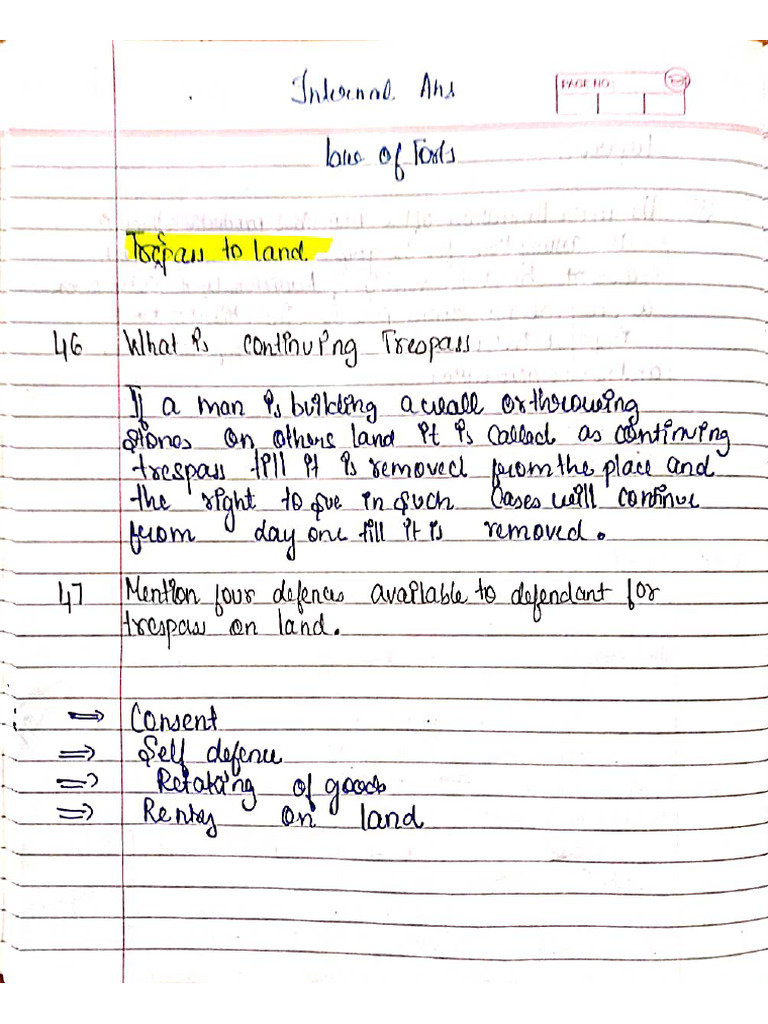 Internal Ans
PAGE NO.
law of Torts
Trespass to land.
46 What is continuing Trespass
If a man is building a wall or throwing
stones on others land it is called as continuing
trespass till it is removed from the place and
the right to sue in such cases will continue
from day one till it is removed.
47 Mention four defences available to defendant for
trespass on land.
⇒ Consent
⇒ Self defence
⇒ Retaking of goods
⇒ Rentry on land